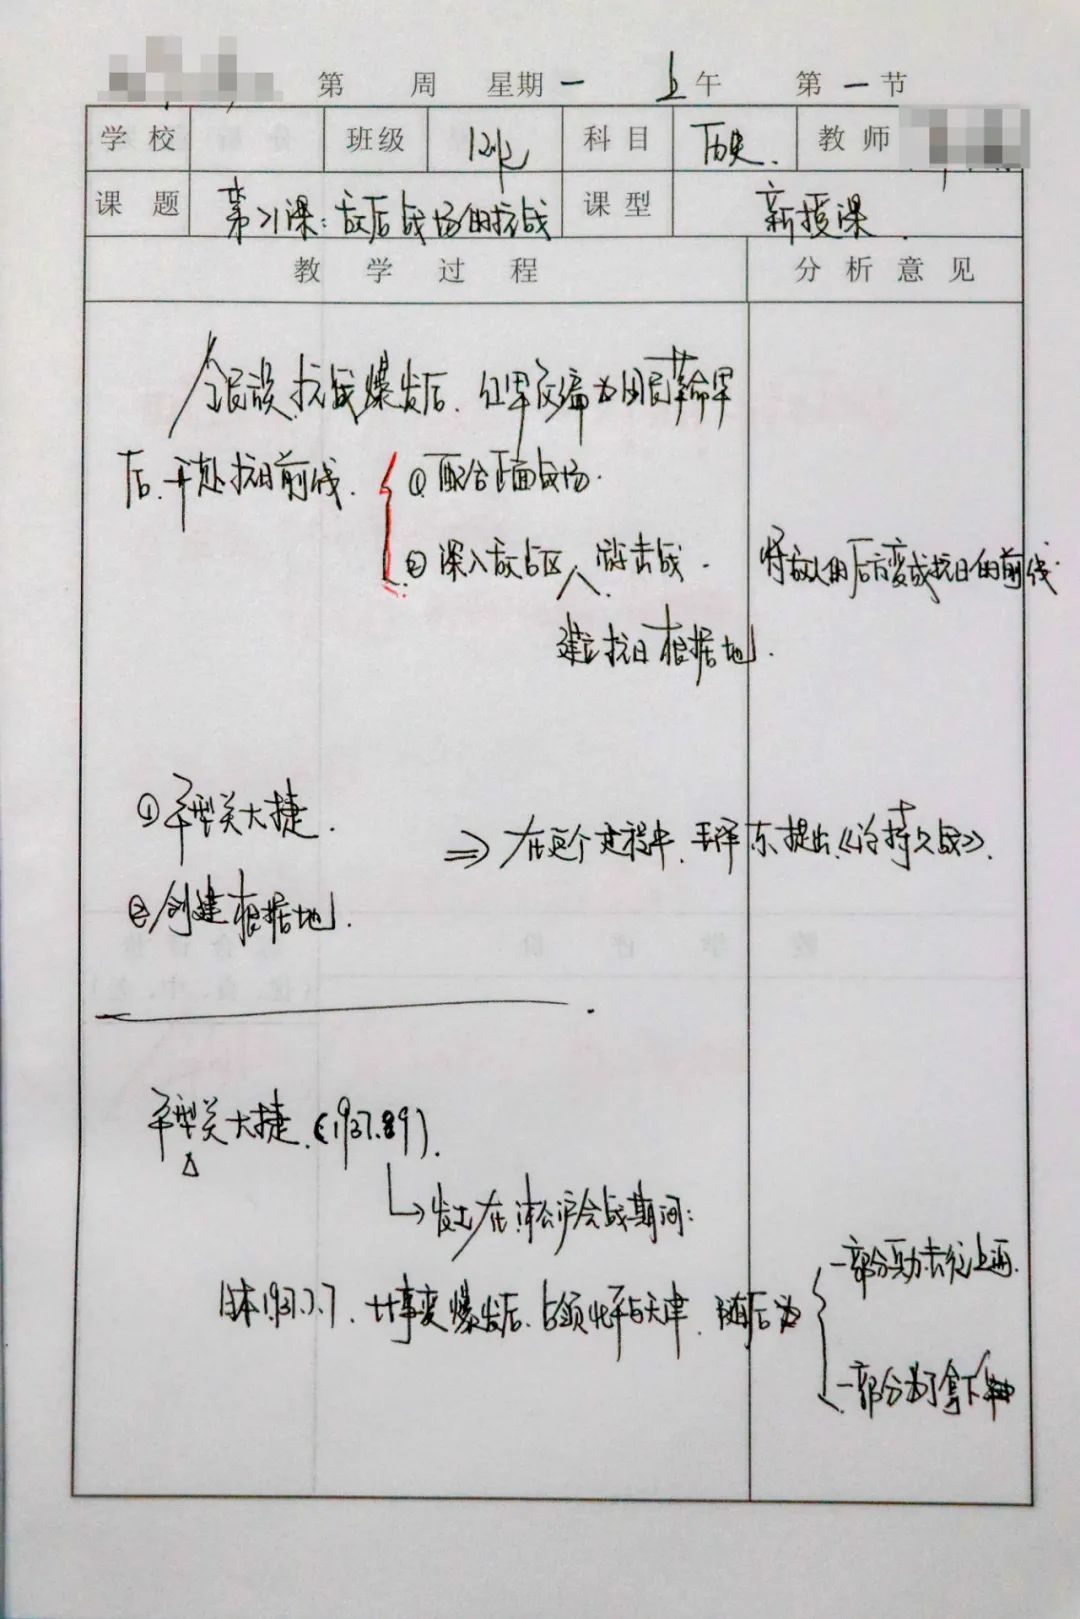 第 周 星期一 上午 第一节
学校 班级 科目 历史. 教师
课题 第21课:敌后战场的抗战 课型 新授课.
教学过程 分析意见
全民族抗战爆发后, 红军改编为国民革命军
后,开赴抗日前线. ①配合正面战场.
②深入敌占区 游击战. 将敌人的后方变成抗日的前线.
建立抗日根据地.
①平型关大捷.
⇒ 在这个过程中, 毛泽东提出《论持久战》.
②创建根据地.
平型关大捷.(1937.
→发生在淞沪会战期间:
一部分兵力去往上海.
日本1937.7.7, 七七事变爆发后, 占领北平与天津, 随后为
一部分为了拿下